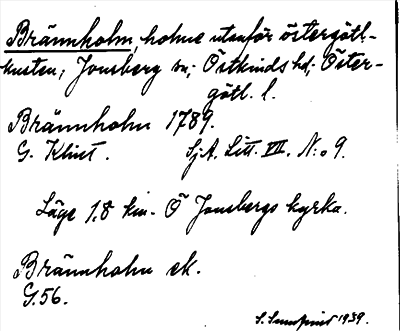 Brännholm, holme utanför östergötl.-
kusten, Jonsberg sn; Östkinds hd; Öster-
götl. l.
Brännholm 1789.
G. Klint. SjA. Litt. VII. N:o 9.
Läge 1,8 km. Ö Jonsbergs kyrka.
Brännholm ek.
G.56.
S. Sundqvist 1939.